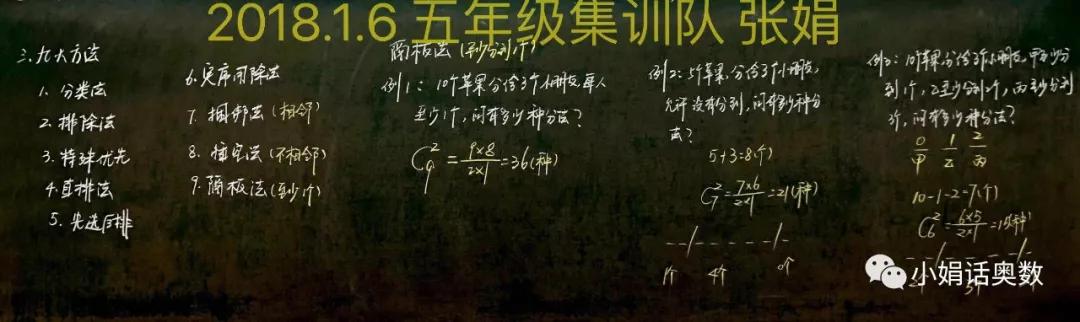 2018.1.6 五年级集训队 张娟
三.九大方法
1. 分类法
2. 排除法
3. 特殊优先
4. 直排法
5. 先选后排
6. 定序用除法
7. 捆绑法(相邻)
8. 插空法(不相邻)
9. 隔板法(至少1个)
隔板法(至少分到1个)
例1: 10个苹果分给3个小朋友,每人
至少1个,问有多少种分法?
C₉² = 9×8/2×1 = 36(种)
例2: 5个苹果,分给3个小朋友,
允许没有分到,问有多少种分
法?
5+3=8(个)
C₇² = 7×6/2×1 = 21(种)
1个 4个 0个
例3: 10个苹果,分给3个小朋友,甲至少分
到1个,乙至少分到2个,丙至少分到
3个,问有多少种分法?
0 1 2
甲 乙 丙
10-1-2=7(个)
C₆² = 6×5/2×1 = 15(种)
小娟话奥数